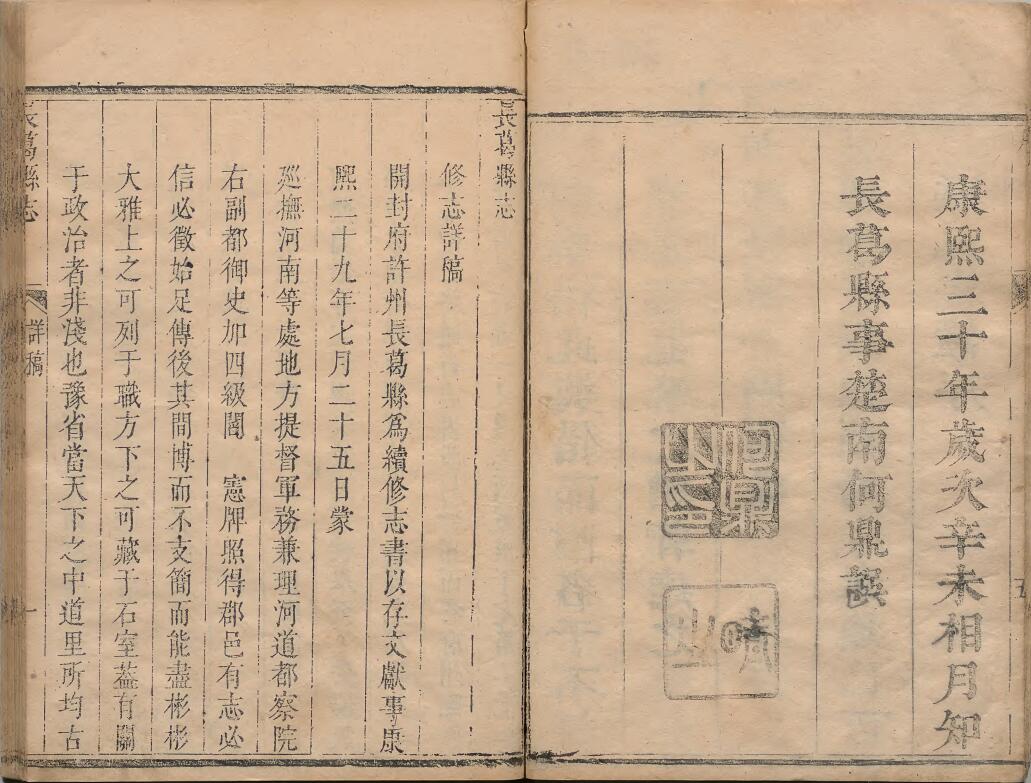 康熙三十年歲次辛未相月知
長葛縣事楚南何鼎譔
何鼎之印
晴山
長葛縣志
修志詳稿
開封府許州長葛縣爲續修志書以存文獻事康
熙二十九年七月二十五日蒙
廵撫河南等處地方提督軍務兼理河道都察院
右副都御史加四級閻 憲牌照得郡邑有志必
信必徵始足傳後其間博而不支簡而能盡彬彬
大雅上之可列于職方下之可藏于石室葢有關
于政治者非淺也豫省當天下之中道里所均古
長葛縣志 詳稿 一